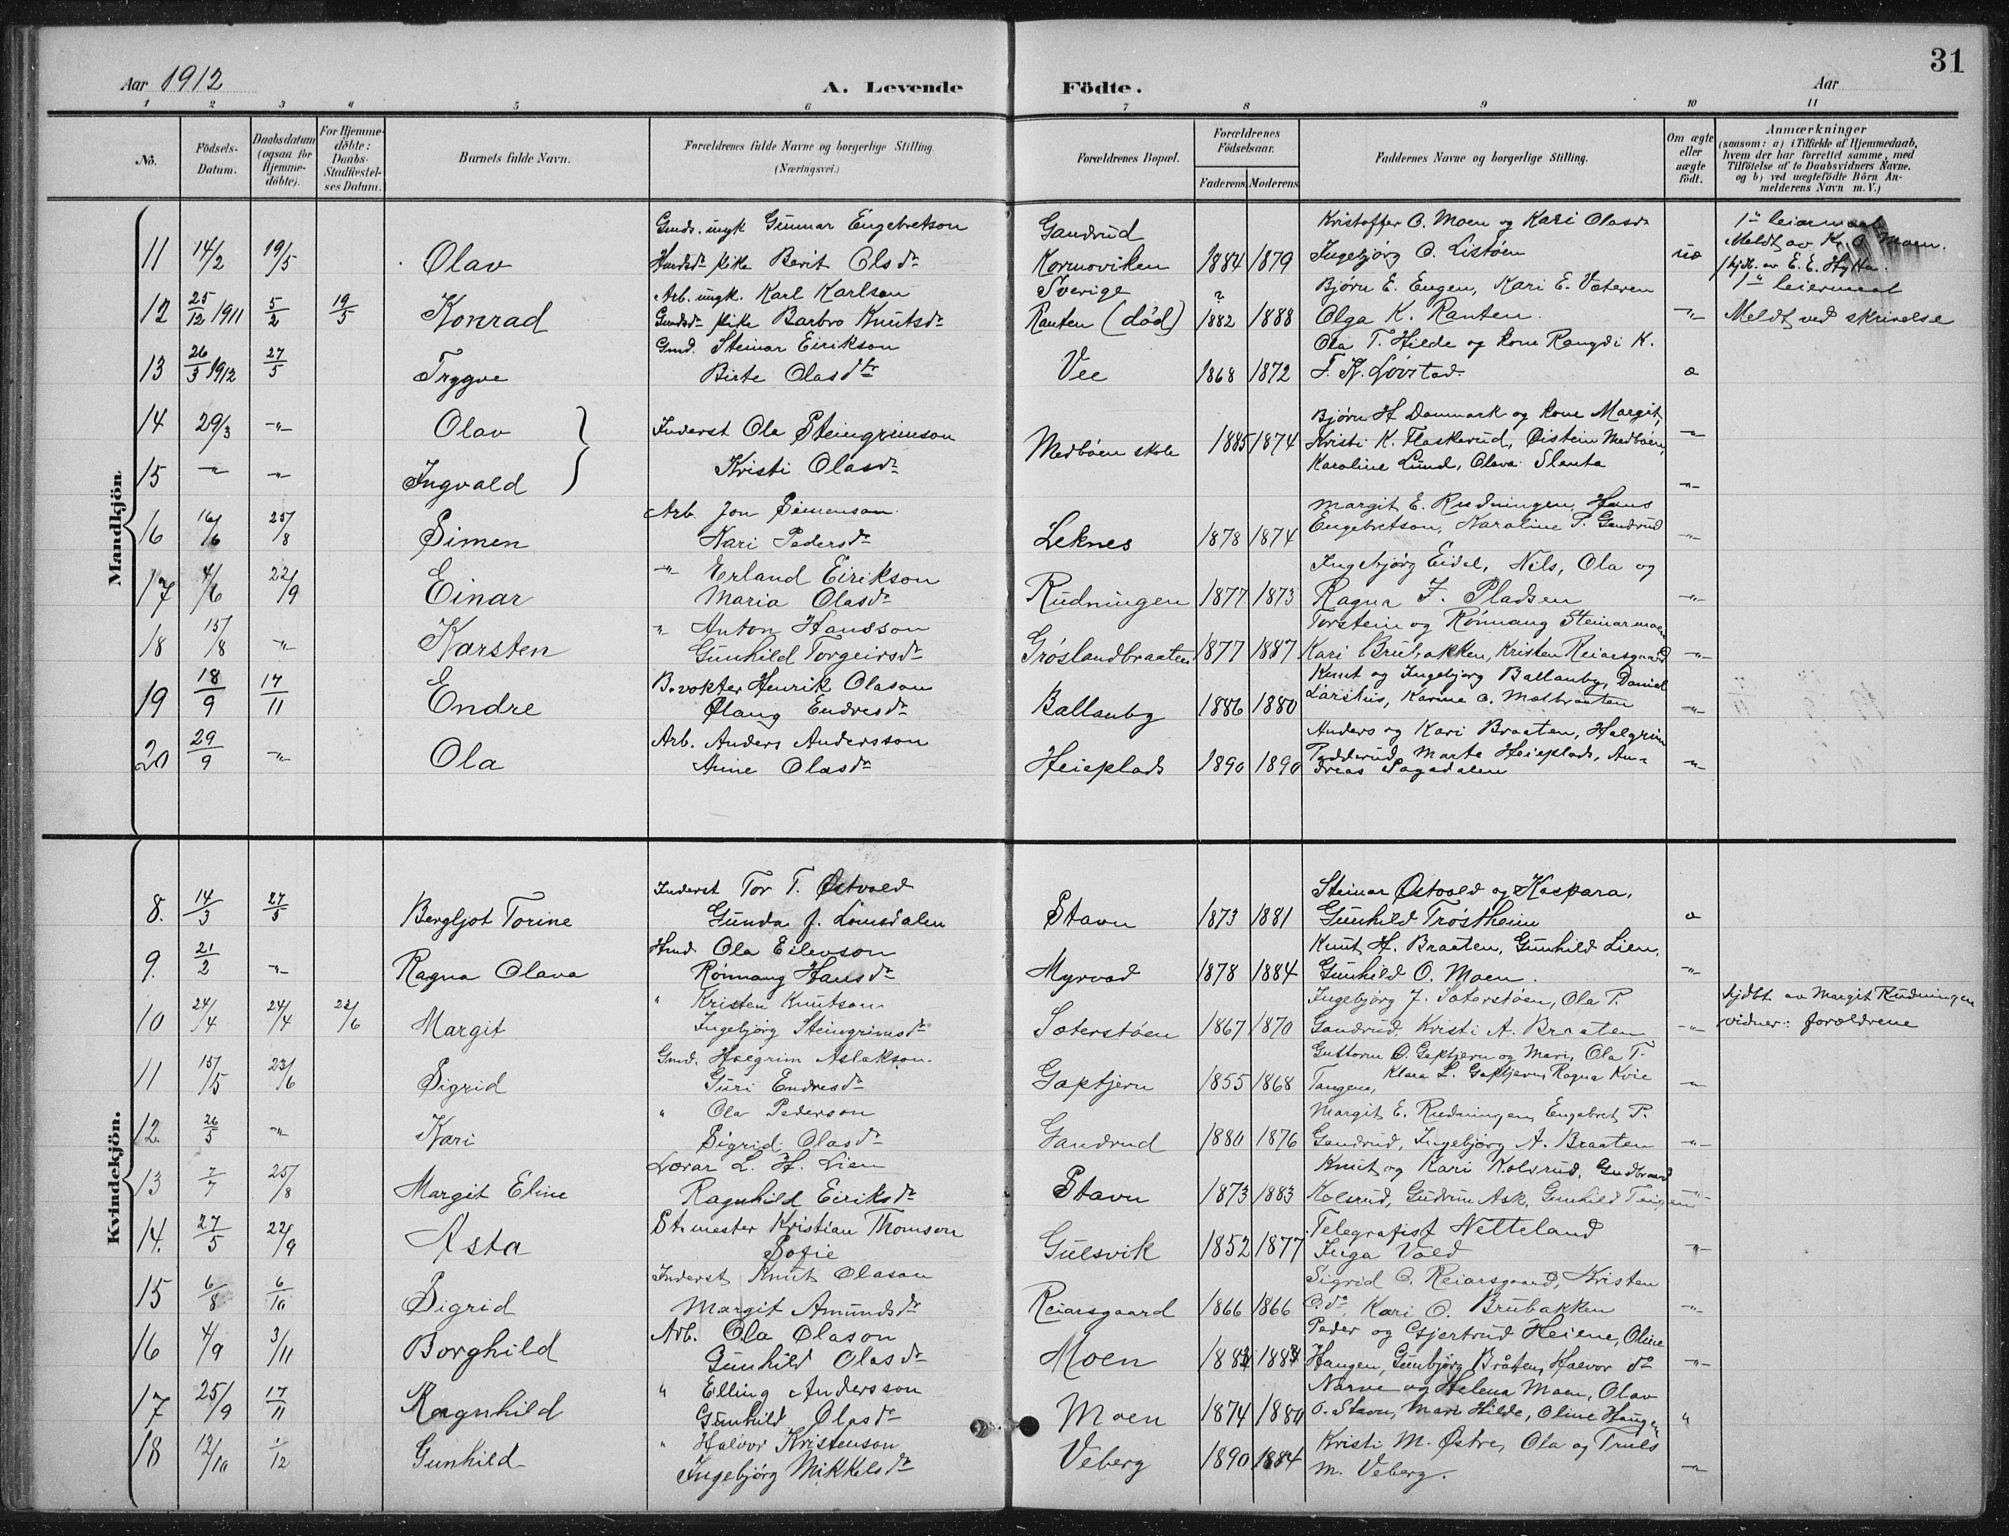 31
Aar 1912 A. Levende Födte. Aar
1 2 3 4 5 6 7 8 9 10 11
No. Födsels-Datum. Daabsdatum (ogsaa for Hjemme-döbte). For Hjemme-döbte: Daabs-Stadfæstelses Datum. Barnets fulde Navn. Forældrenes fulde Navne og borgerlige Stilling. (Næringsvei.) Forældrenes Bopæl. Forældrenes Födselsaar. Faderens Moderens Faddernes Navne og borgerlige Stilling. Om ægte eller uægte födt. Anmærkninger (saasom: a) i Tilfælde af Hjemmedaab, hvem der har forrettet samme, med Tilföielse af to Daabsvidners Navne. og b) ved uægtefödte Börn Anmelderens Navn m. V.)
Mandkjön.
Gmds. ungk Gunnar Engebretson Gandrud Kristoffer O. Moen og Kari Olasdr 1ste leiermaal
11 14/2 19/5 Olav Husdsdr pike Berit Olsdr Kornoviken 1884 1879 Ingebjørg O. Listøen uæ Meldt av K. O. Moen.
Hjdb. av E. E. Hytta.
Arb. ungk. Karl Karlson Sverige ? Bjørn E. Engen, Kari E. Væteren 1ste leiermaal
12 25/12 1911 5/2 19/5 Konrad Gmdsdr pike Barbro Knutsdr Ranten (død) 1882 1888 Olga K. Ranten. -"- Meldt ved skrivelse
Gmd. Steinar Eirikson Ola T. Hilde og kone Rangdi K.
13 26/3 1912 27/5 Trygve Birte Olasdtr Vee 1868 1872 T. K. Løvstad. æ
14 29/3 -"- Olav Inderst Ola Steingrimson Medbøen skole 1885 1874 Bjørn H Danmark og kone Margit, -"-
Kristi K. Flaskerud, Øistein Medbøen,
15 -"- -"- Ingvald Kristi Olasdr Karoline Lund, Olava Slenta -"-
Arb. Jon Simenson. Margit E. Rudningen, Hans
16 16/6 25/8 Simen Kari Pedersdr Leknes 1878 1874 Engebretson, Karoline P. Gandrud -"-
-"- Erland Eirikson Ingebjørg Eidel, Nils, Ola og
17 4/6 22/9 Einar Maria Olasdr Rudningen 1877 1873 Ragna J. Pladsen -"-
" Anton Hansson Torstein og Rønnang Steinarmoen
18 15/8 -"- Karsten Gunhild Torgeirsdr Grøslandbraaten 1877 1887 Kari Brubakken, Kristen Reiarsgaard -"-
B.vokter Henrik Olason Knut og Ingebjørg Ballanby, Daniel
19 18/9 17/11 Endre Ølaug Endresdr Ballanby 1886 1880 Larshus, Karine O. Mælbraaten -"-
Arb. Anders Andersson Anders og Kari Braaten, Halgrim
20 29/9 -"- Ola Anne Olasdr Heieplads 1890 1890 Padderud, Marte Heieplads, An- -"-
dreas Sagadalen
Kvindekjön.
Inderst Tor T. Østvold Steinar Østvold og Kaspara,
8. 14/3 27/5 Bergljot Torine Gunda J. Lomsdalen Stavn 1873 1881 Gunhild Trøstheim æ
Hmd. Ola Eilevson Knut H. Braaten, Gunhild Lien,
9. 21/2 -"- Ragna Olava Rønnang Hansdr Myrvod 1878 1884 Gunhild O. Moen. -"-
" Kristen Knutson Ingebjørg J. Sæterstøen, Ola P. Hjdbt. av Margit Rudningen
10 24/4 24/4 22/6 Margit Ingebjørg Steingrimsdr Sæterstøen 1867 1870 Gandrud, Kristi A. Braaten -"- vidner: forældrene
Gmd. Halgrim Aslakson. Guttorm O. Gaptjern og Mari, Ola T.
11 15/5 23/6 Sigrid Guri Endresdr Gaptjern 1855 1868 Tangene, Klara L. Gaptjern, Ragna Kvie -"-
" Ola Pederson Margit E. Rudningen, Engebret P.
12 26/5 -"- Kari Sigrid Olasdr Gandrud 1880 1876 Gandrud, Ingebjørg A. Braaten -"-
Lærar L. H. Lien Knut og Kari Kolsrud, Gudbrand
13 7/7 25/8 Margit Eline Ragnhild Eiriksdr Stavn 1873 1883 Kolsrud, Gudrun Ask, Gunhild Teigen -"-
St.mester Kristian Thomson Telegrafist Netteland
14. 27/5 22/9 Asta Sofie Gulsvik 1852 1877 Inga Vold -"-
Inderst Knut Olason Sigrid O. Reiarsgaard, Kristen
15 6/8 6/10 Sigrid Margit Amundsdr Reiarsgaard 1866 1866 O. do, Kari O. Brubakken -"-
Arb. Ola Olason Peder og Gjertrud Heiene, Oline
16 4/9 3/11 Borghild Gunhild Olasdr Moen Haugen, Gunbjørg Bråten, Halvor do -"-
" Elling Andersson Narve og Helena Moen, Olav
17 25/9 17/11 Ragnhild Gunhild Olasdr Moen 1874 O. Stavn, Mari Hilde, Oline Haugen "
" Halvor Kristenson Kristi M. Østre, Ola og Truls
18 12/10 1/12 Gunhild Ingebjørg Mikkelsdr Veberg 1890 1884 M. Veberg. -"-